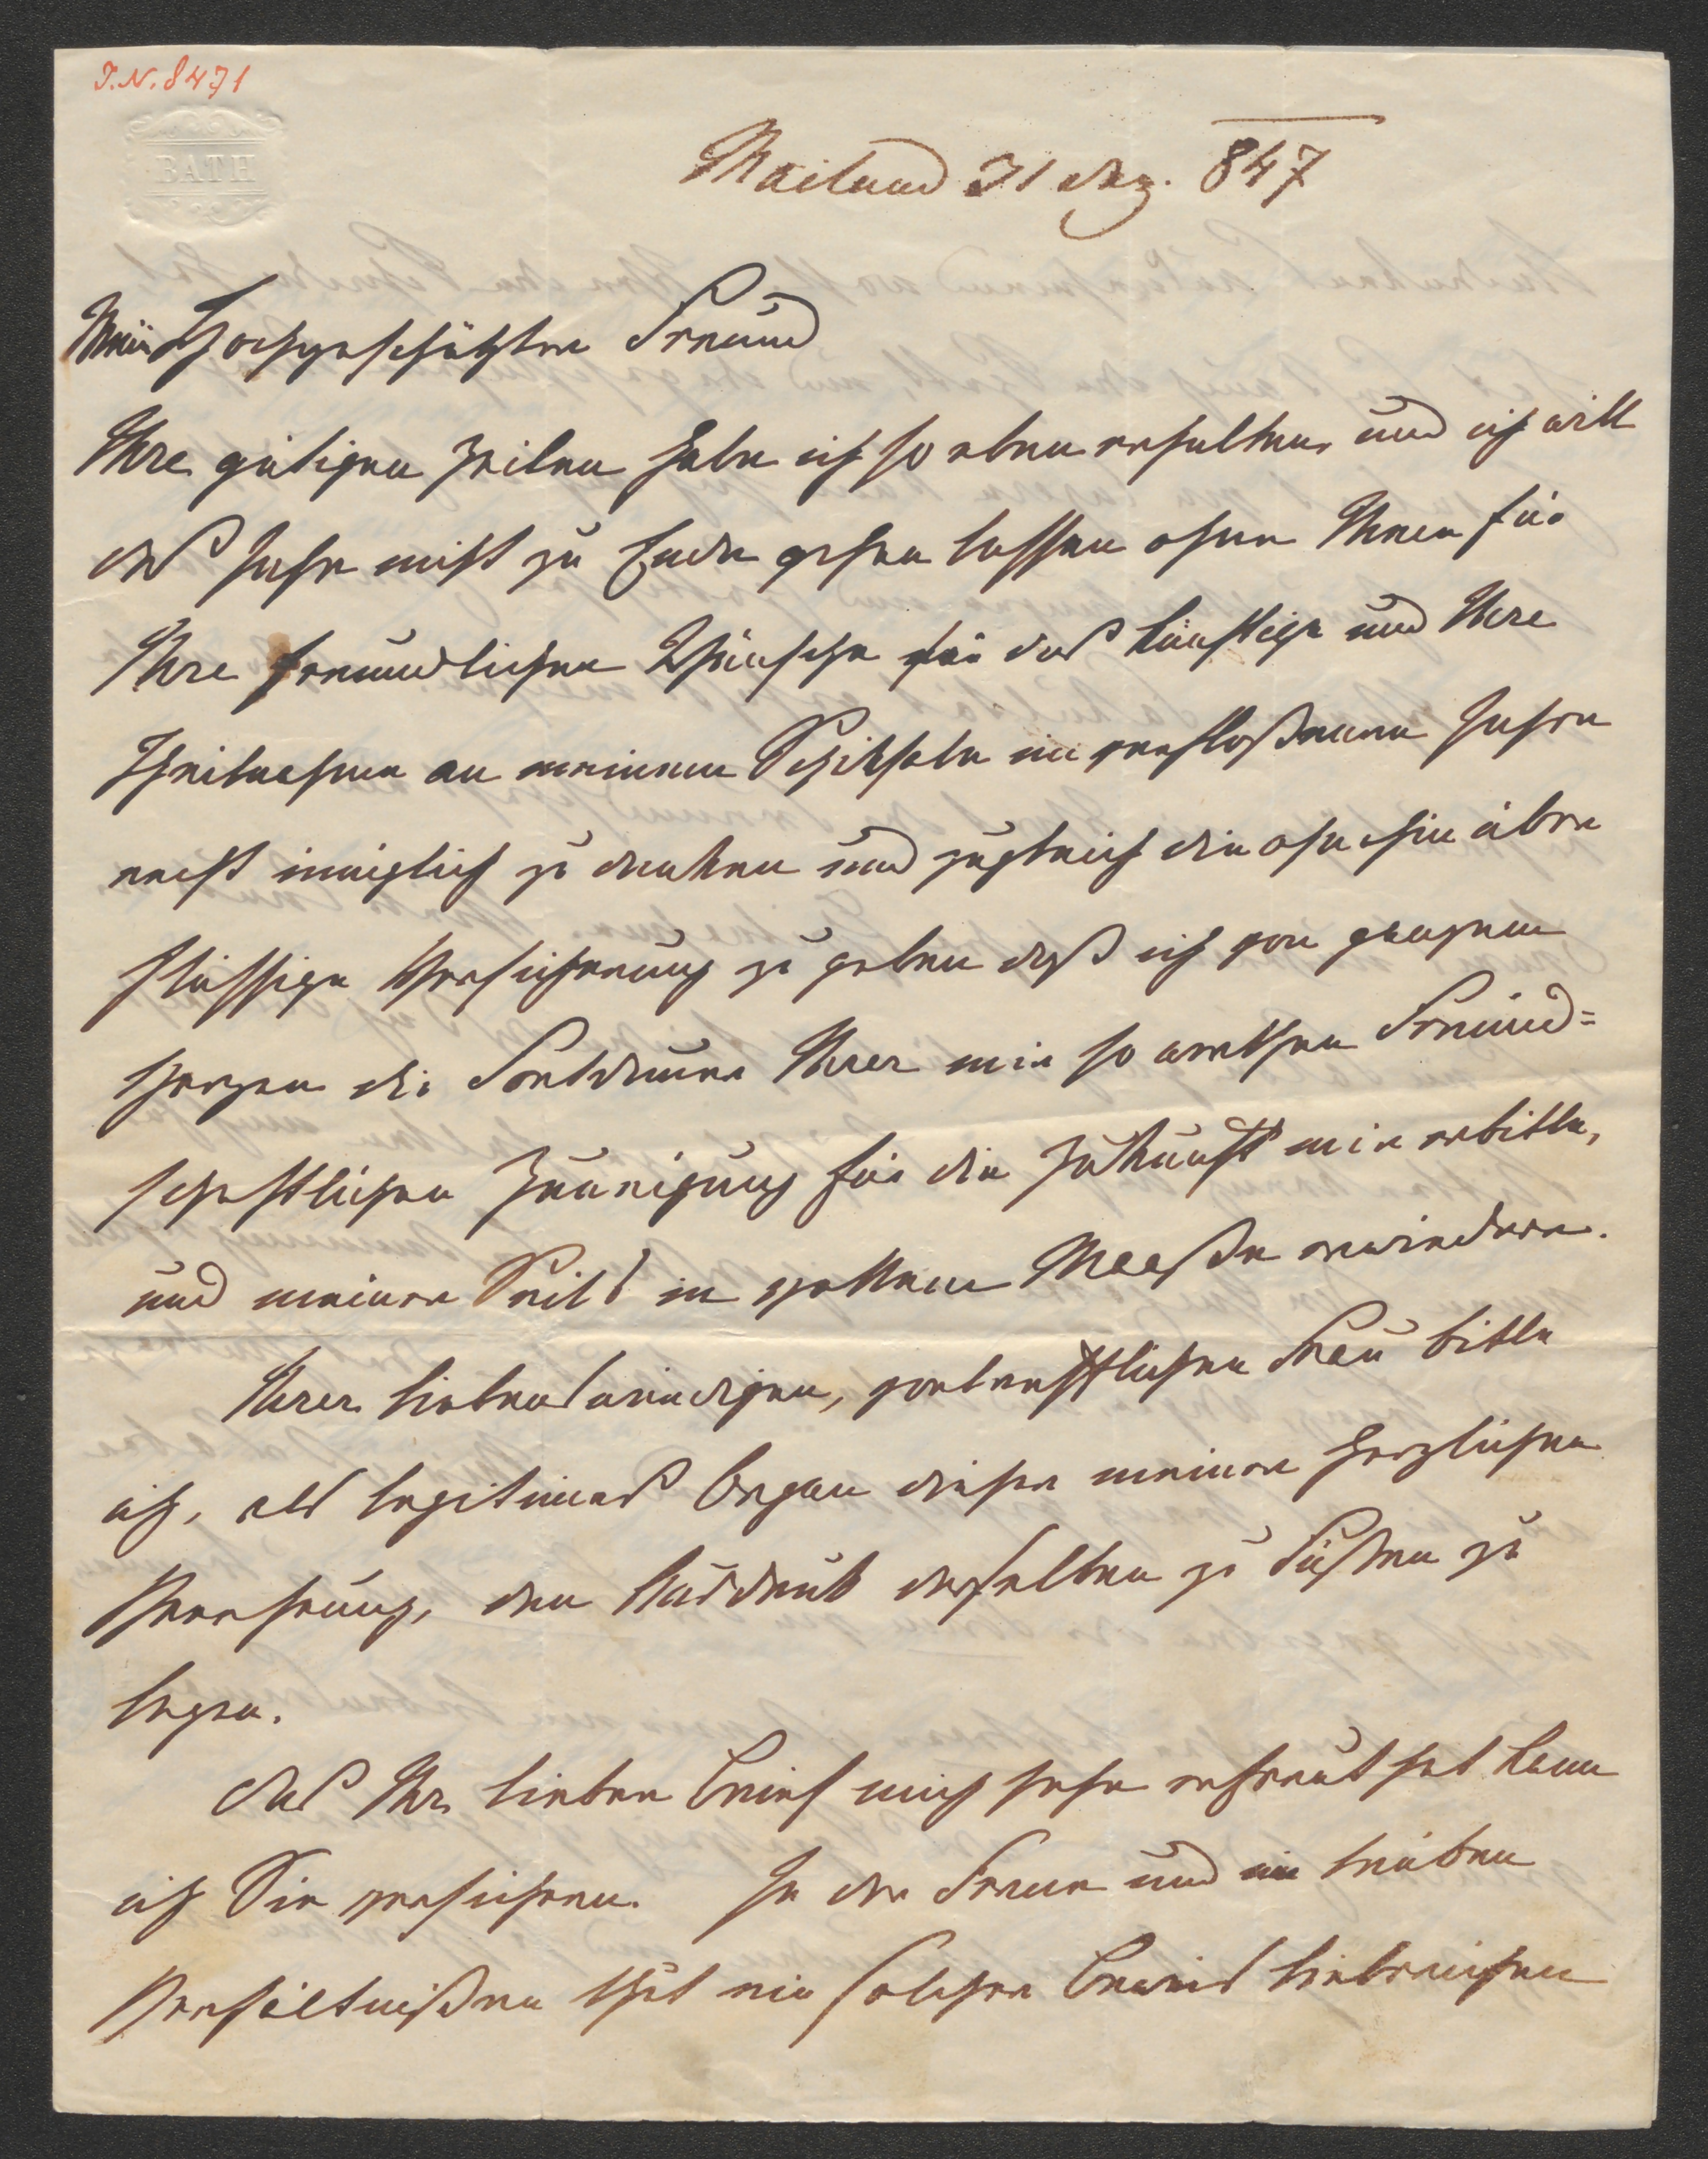 I.N. 8471
BATH
Mailand 31 Dez. 847
Mein Hochgeschätzter Freund
Ihre gütigen Zeilen habe ich so eben erhalten, und ich will
das Jahr nicht zu Ende gehen lassen ohne Ihnen für
Ihre freundlichen Wünsche für das künftige und Ihre
Theilnahme an meinem Schiksale im verfloßenen Jahre
recht inniglich zu danken und zugleich die ohnehin über
flüssige Versicherung zu geben daß ich von ganzem
Herzen die Fortdauer Ihrer mir so werthen Freund=
schaftlichen Zuneigung für die Zukunft mir erbitte,
und meiner Seits in vollem Maaße erwiedere.
Ihrer liebenswürdigen, vortrefflichen Frau bitte
ich, als legitimes Organ dieser meiner herzlichen
Verehrung, den Ausdruk derselben zu Füßen zu
legen.
Das Ihr lieber Brief mich sehr erfreut hat kann
ich Sie versichern. In der Ferne und in trüben
Verhältnißen thut ein solcher Beweis liebreichen